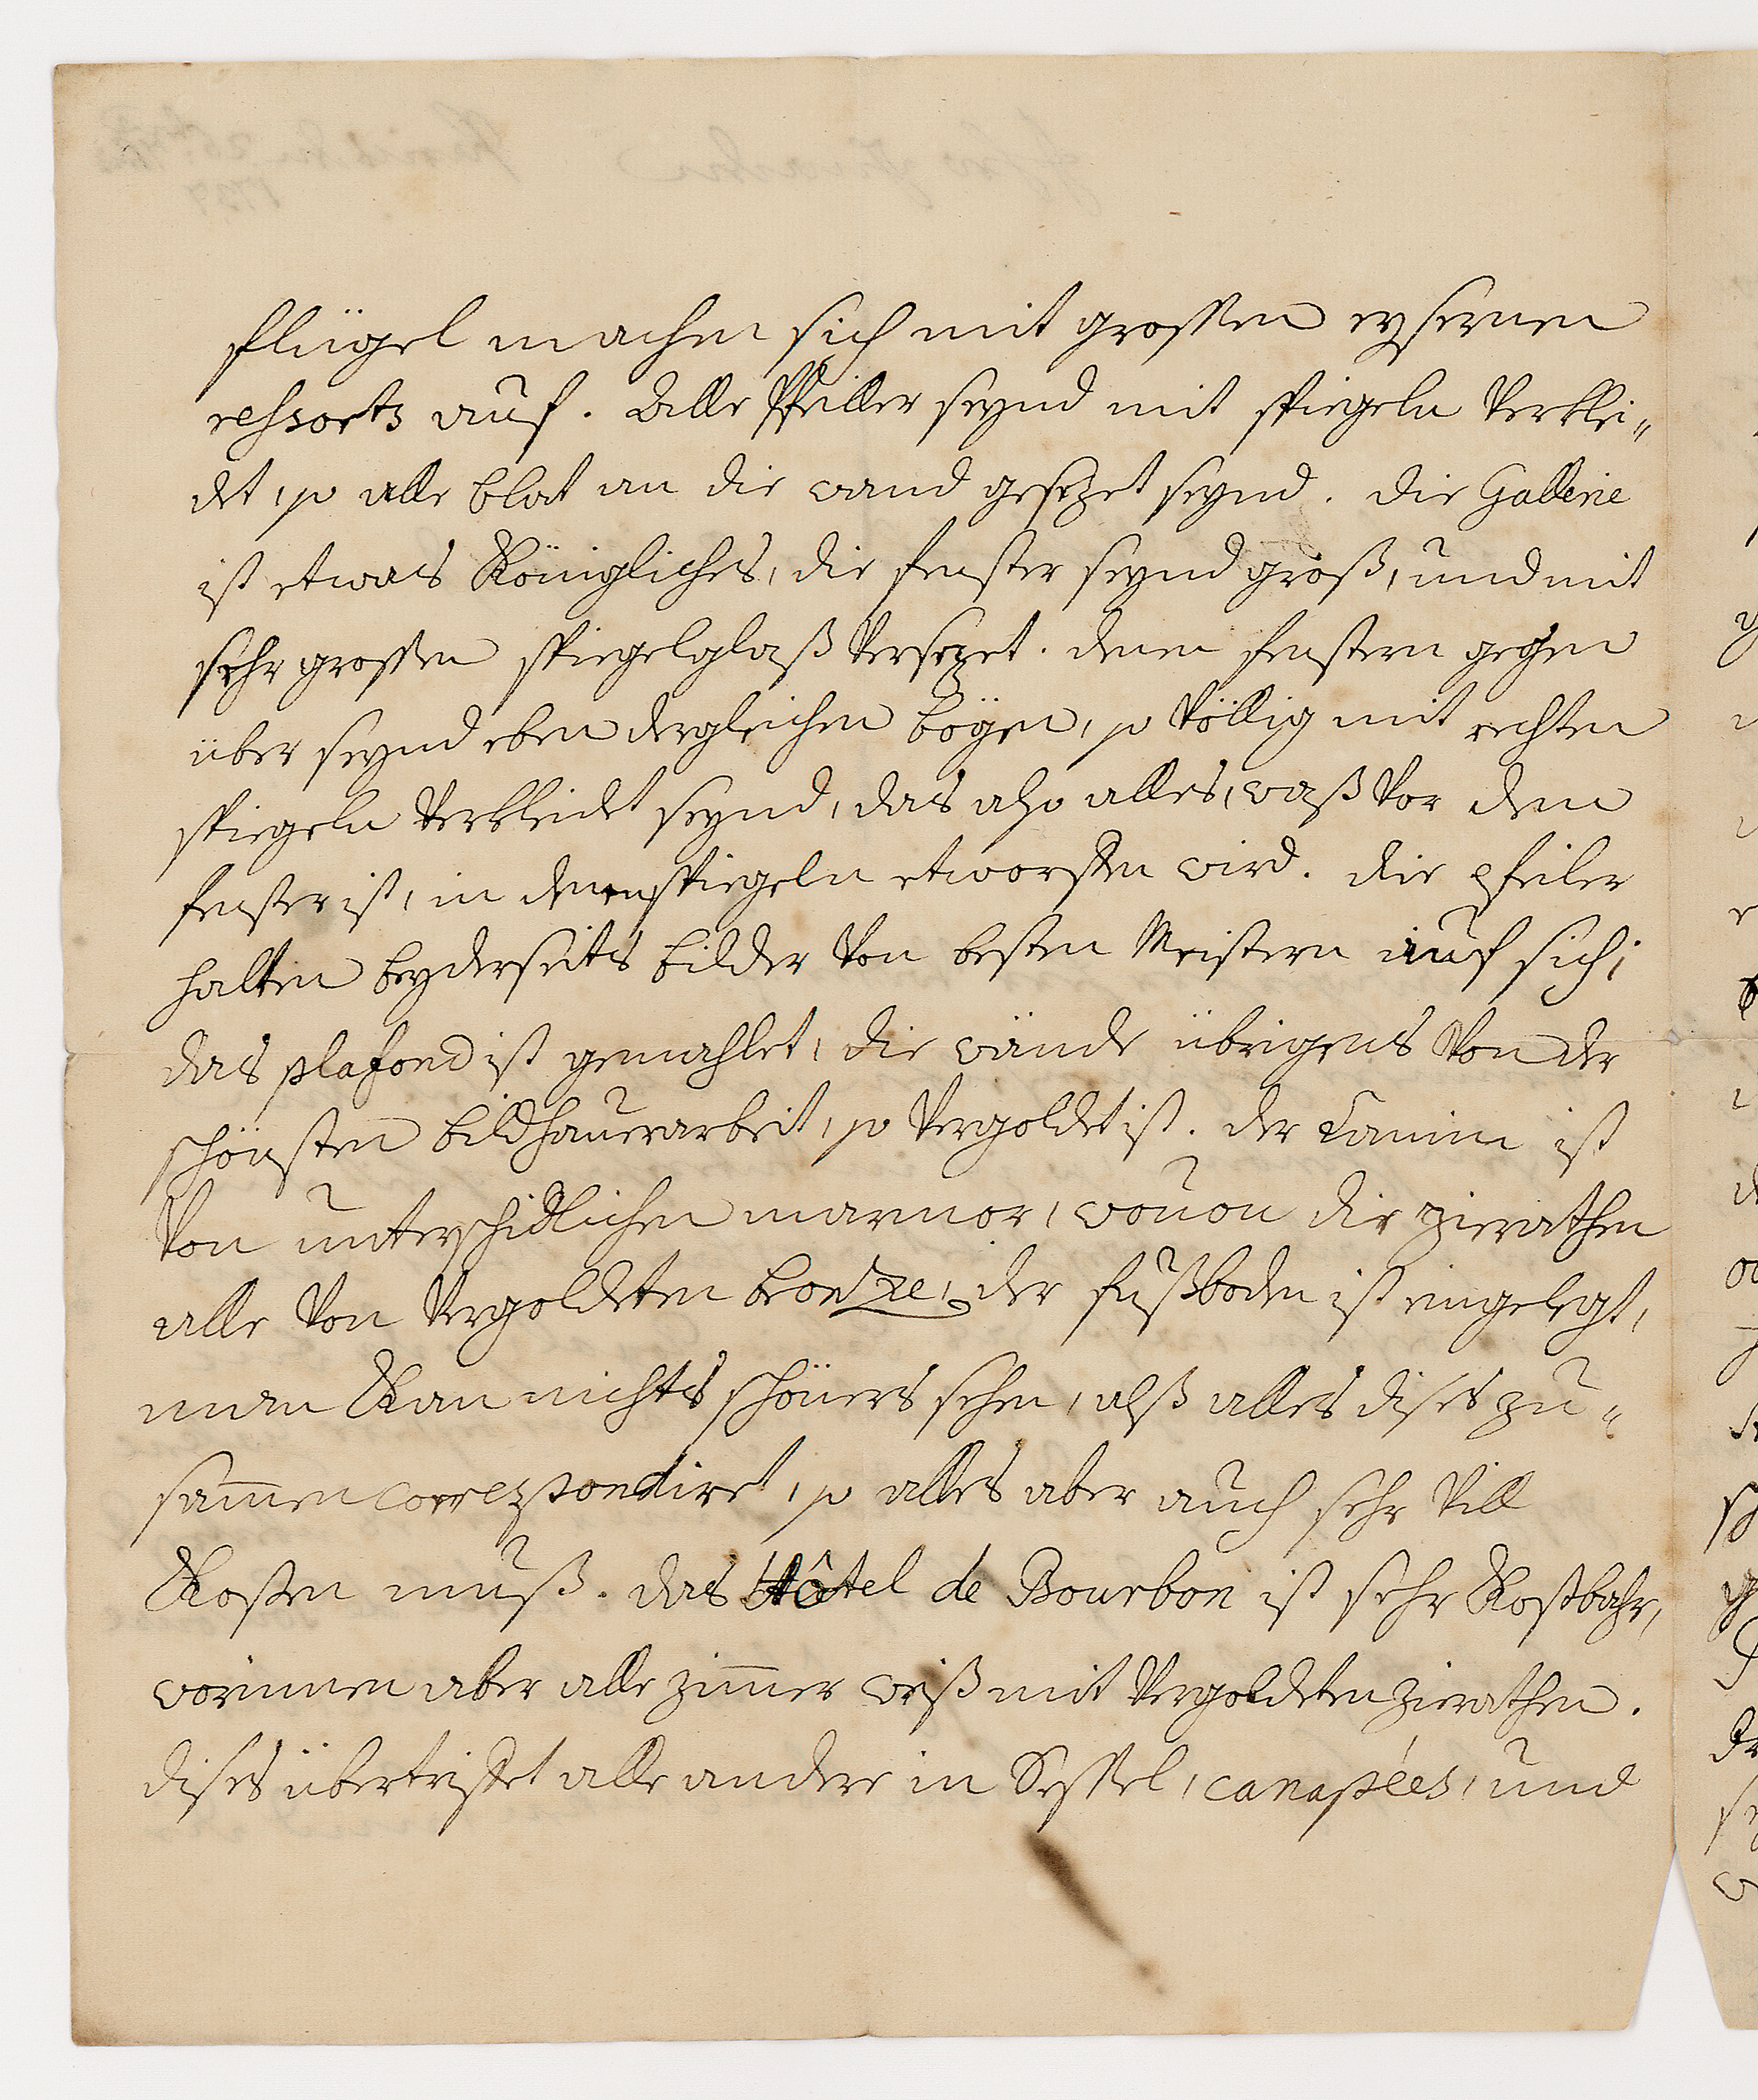 flügel machen sich mit grossen eysernen
ressorts auf. Alle Pfeiller seynd mit spiegeln verklei„
det, so alle blat an die wand gesezet seynd. die Gallerie
ist etwas Königliches, die fenster seynd groß, und mit
sehr grossen spiegelglaß versezet. denen fenstern gegen
über seynd eben dergleichen bögen, so völlig mit rechten
spiegeln verkleidet seynd, das also alles, waß vor dem
fenster ist, in denen spiegeln etworffen wird. die pfeiler
halten beyderseits bilder von besten Meistern auf sich;
das plafond ist gemahlet, die wände übrigens von der
schönsten bildhauerarbeit, so vergoldet ist. der Camin ist
von unterschidlichen marmor, wovon die zierathen
alle von vergoldeten bronze, der fußboden ist eingelegt,
man kan nichts schöners sehen, alß alles dises zu„
sammen correspondiret, so alles aber auch sehr vill
kosten muß. das Hôtel de Bourbon ist sehr kostbahr,
worinnen aber alle zimmer weiß mit vergoldeten zierathen.
dises übertriffet alle andere in Sessel, canapées, und